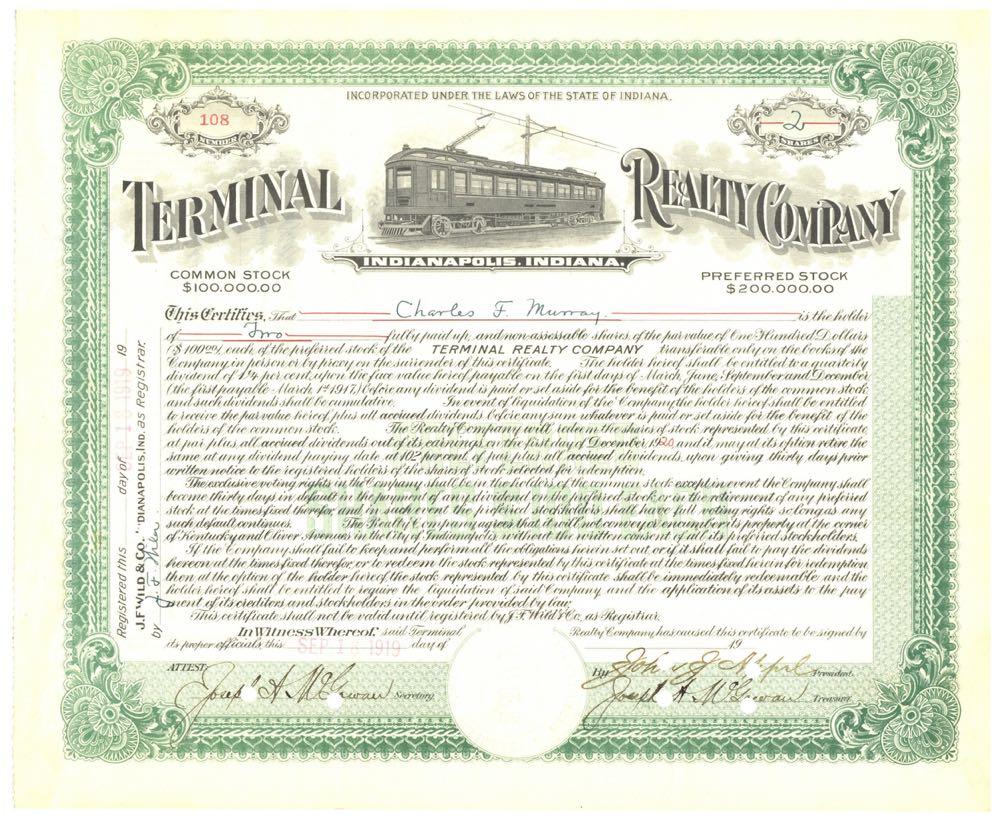 INCORPORATED UNDER THE LAWS OF THE STATE OF INDIANA.
108
NUMBER
2
SHARES
TERMINAL REALTY COMPANY
INDIANAPOLIS, INDIANA.
COMMON STOCK
$100.000.00
PREFERRED STOCK
$200.000.00
This Certifies, That Charles F. Murray. is the holder
of Two fully paid up, and non-assessable shares of the par value of One Hundred Dollars
($100.00), each, of the preferred stock of the TERMINAL REALTY COMPANY transferable only on the books of the
Company in person or by proxy on the surrender of this certificate. The holder hereof shall be entitled to a quarterly
dividend of 1¾ per cent. upon the face value hereof payable on the first days of March, June, September and December
(the first payable March 1st 1917,) before any dividend is paid or set aside for the benefit of the holders of the common stock,
and such dividends shall be cumulative. In event of liquidation of the Company the holder hereof shall be entitled
to receive the par value hereof plus all accrued dividends before any sum whatever is paid or set aside for the benefit of the
holders of the common stock. The Realty Company will redeem the shares of stock represented by this certificate
at par plus all accrued dividends out of its earnings, on the first day of December 1920 and it may at its option retire the
same at any dividend paying date at 102 per cent. of par plus all accrued dividends, upon giving thirty days prior
written notice to the registered holders of the shares of stock selected for redemption.
The exclusive voting rights in the Company shall be in the holders of the common stock except in event the Company shall
become thirty days in default in the payment of any dividend on the preferred stock or in the retirement of any preferred
stock at the times fixed therefor, and in such event the preferred stockholders shall have full voting rights so long as any
such default continues. The Realty Company agrees that it will not convey or encumber its property at the corner
of Kentucky and Oliver Avenues in the City of Indianapolis, without the written consent of all its preferred stockholders.
If the Company shall fail to keep and perform all the obligations herein set out or if it shall fail to pay the dividends
hereon at the times fixed therefor, or to redeem the stock represented by this certificate at the times fixed herein for redemption
then at the option of the holder hereof the stock represented by this certificate shall be immediately redeemable and the
holder hereof shall be entitled to require the liquidation of said Company and the application of its assets to the pay
ment of its creditors and stockholders in the order provided by law.
This certificate shall not be valid until registered by J. F. Wild & Co., as Registrar.
In Witness Whereof, said Terminal Realty Company has caused this certificate to be signed by
its proper officials, this SEP 18 1919 day of 19
ATTEST:
Joseph A. McGowan Secretary.
By President.
Joseph A. McGowan Treasurer.
Registered this day of 19
SEP 18 1919
J.F. WILD & CO. INDIANAPOLIS, IND. as Registrar.
by J. F. Wild